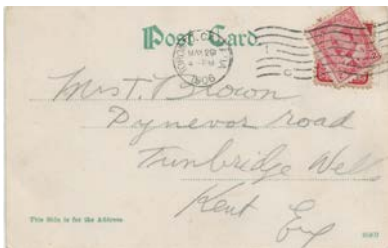 Post Card.
MAY 29
1906
Mrs T. Brown
Dynevor Road
Tunbridge Wells
Kent Eng
This Side is for the Address.